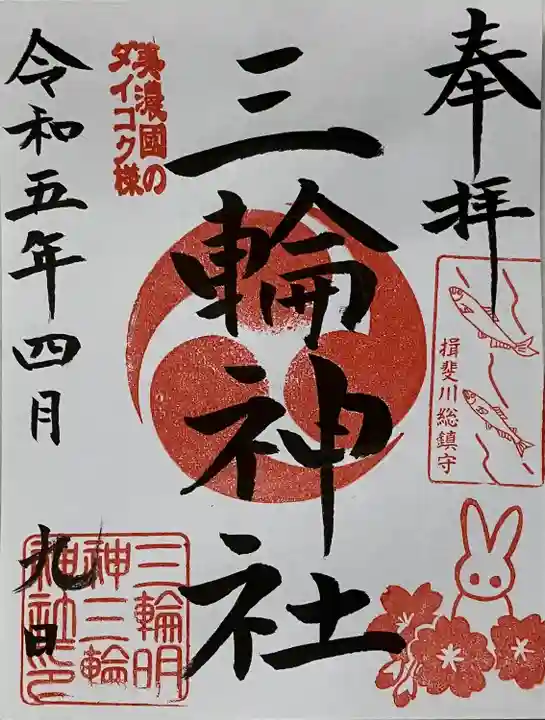 奉拝
揖斐川総鎮守
三輪神社
美濃國の
ダイコク様
令和五年四月九日
三輪明
神三輪
神社印